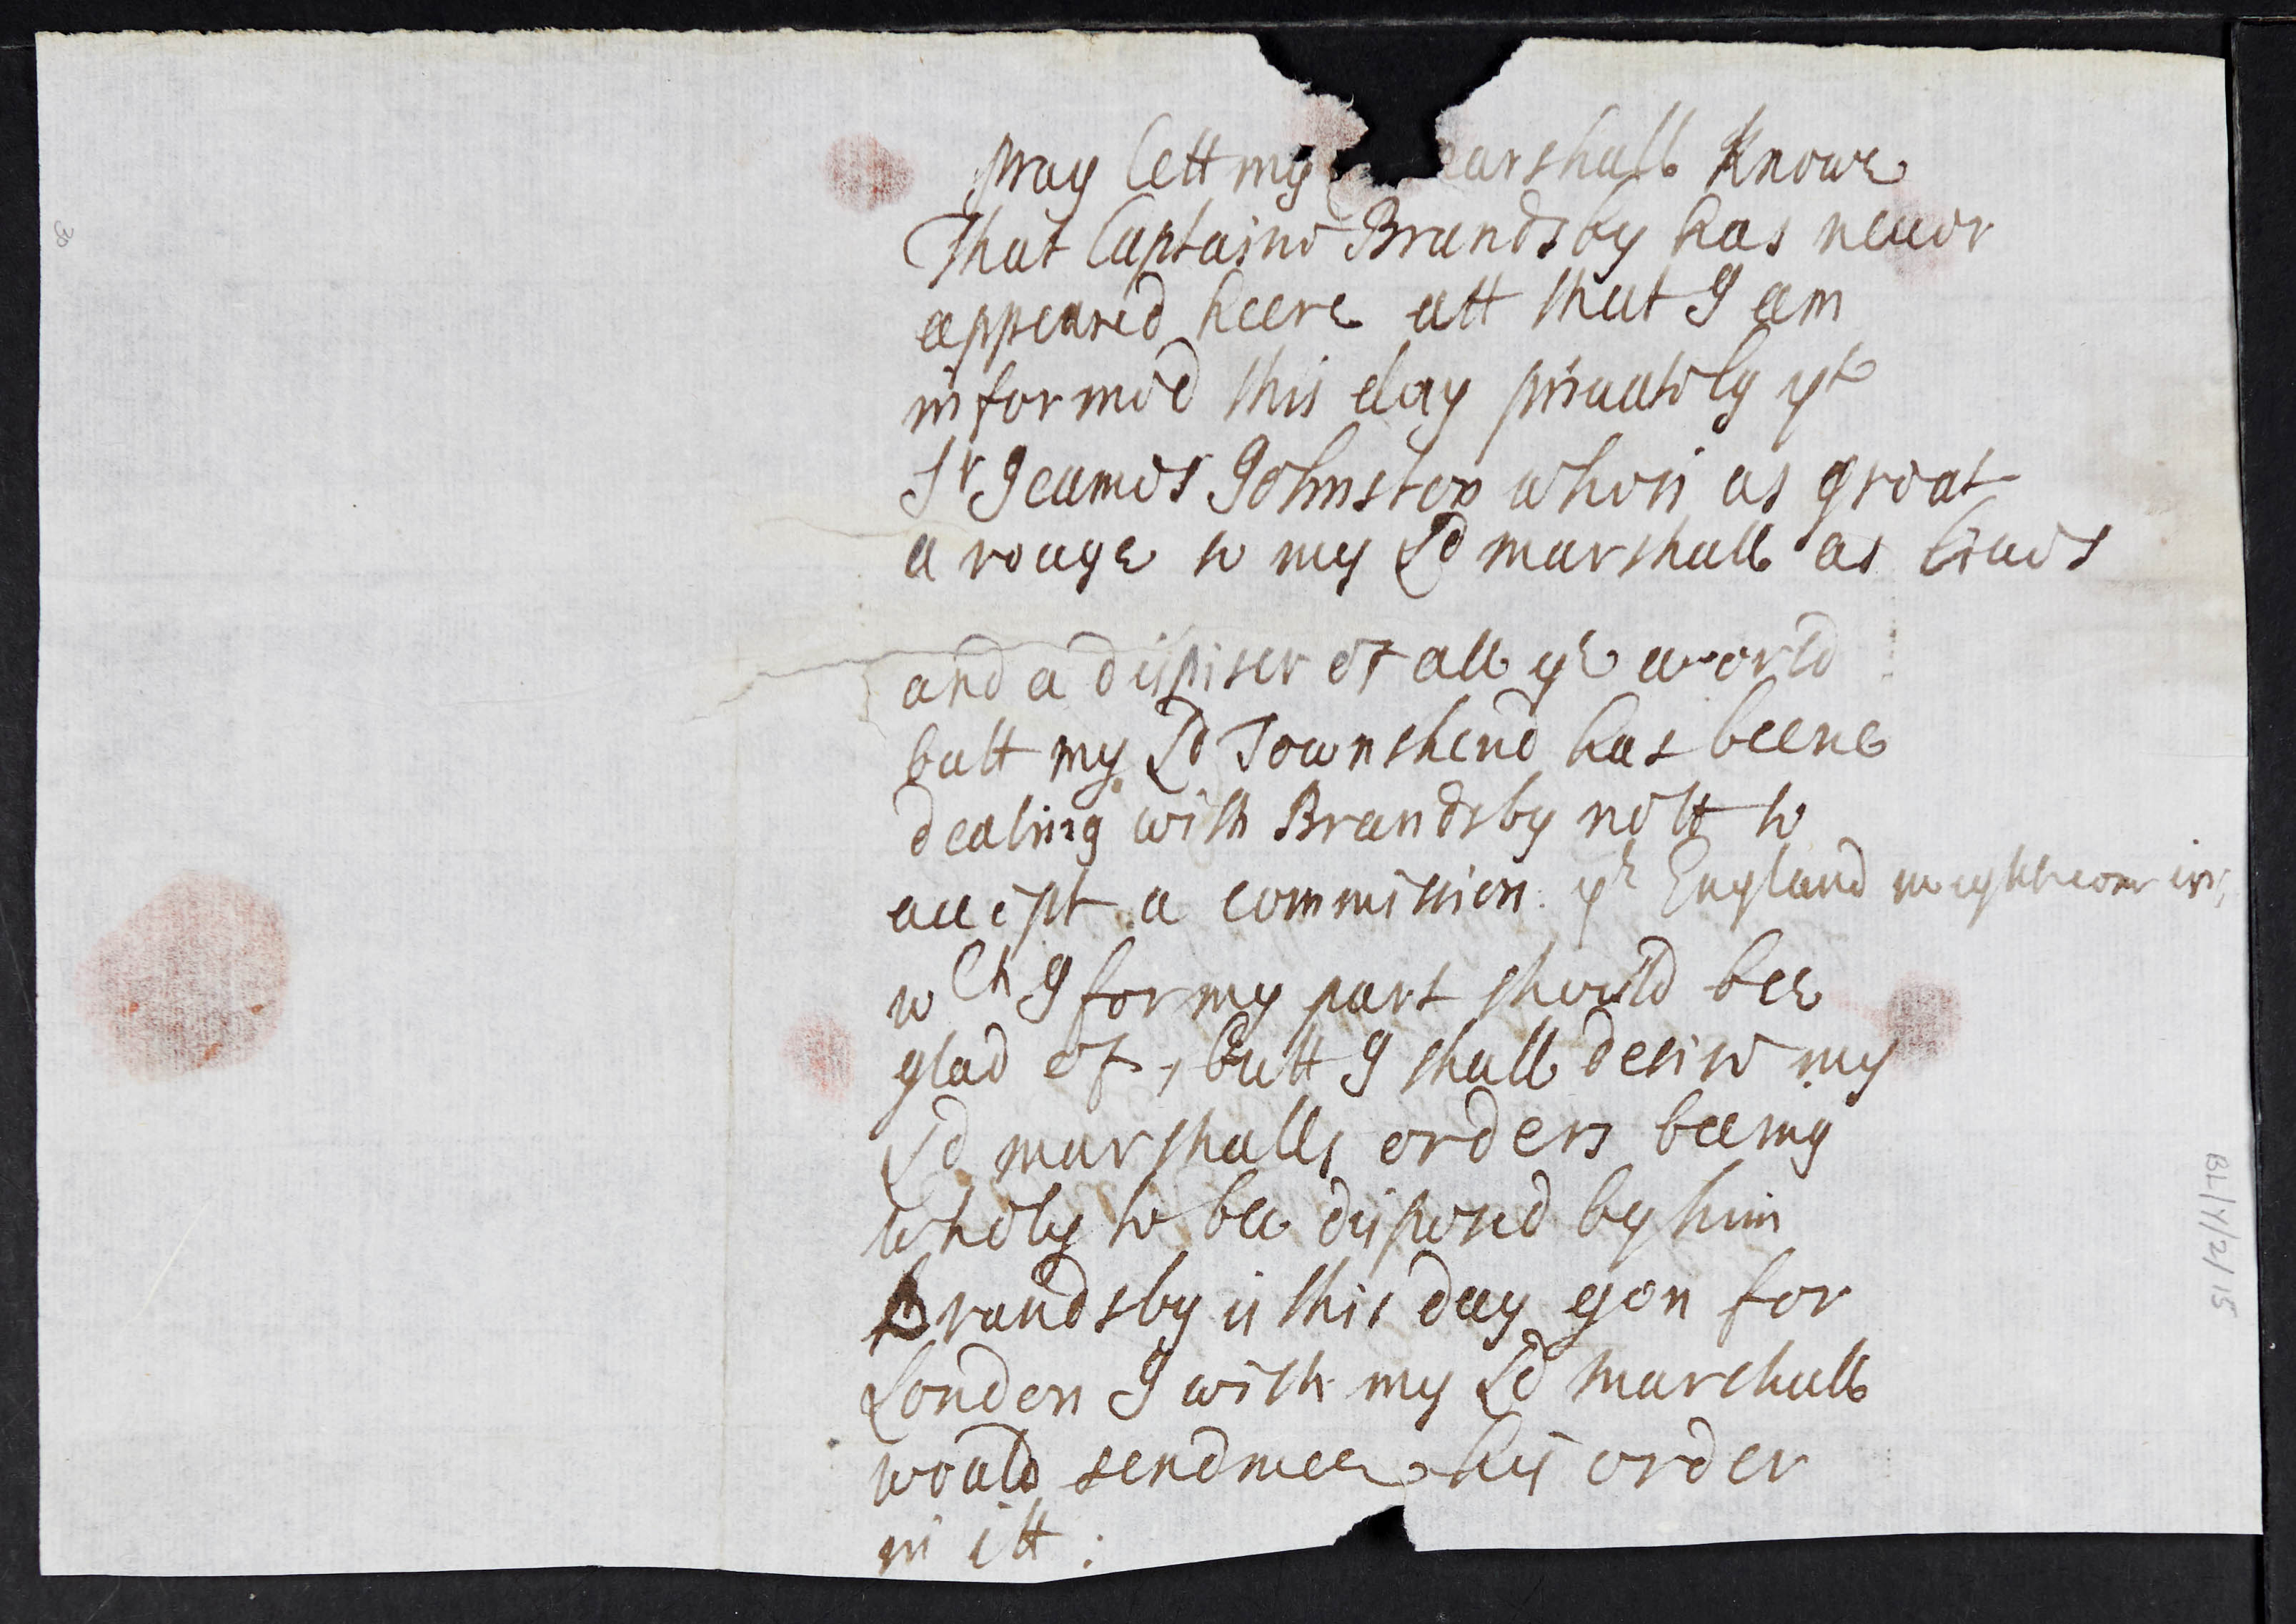 pray lett my marshall Knowe
That Captaine Brandsby has never
appeared heere att that I am
informed this day privately yt
Sr Jeames Johnston who is as great
a rouge to my Ld marshall as lives
and a dispiser of all ye world
butt my Ld Townshend has beene
dealing with Brandsby nott to
accept a commission. yt England might com in,
wch I for my part should bee
glad of, butt I shall desire my
Ld marshalls orders beeing
wholy to bee disposed by him
Brandsby is this day gon for
London I wish my Ld marshall
would send mee his order
in itt :
30
BL/Y/2/15